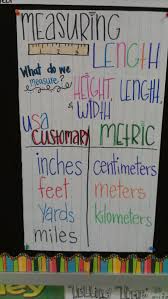 MEASURING
LENGTH
What do we
measure?
HEIGHT, LENGTH,
& WIDTH
USA
CUSTOMARY
METRIC
inches
centimeters
feet
meters
yards
kilometers
miles